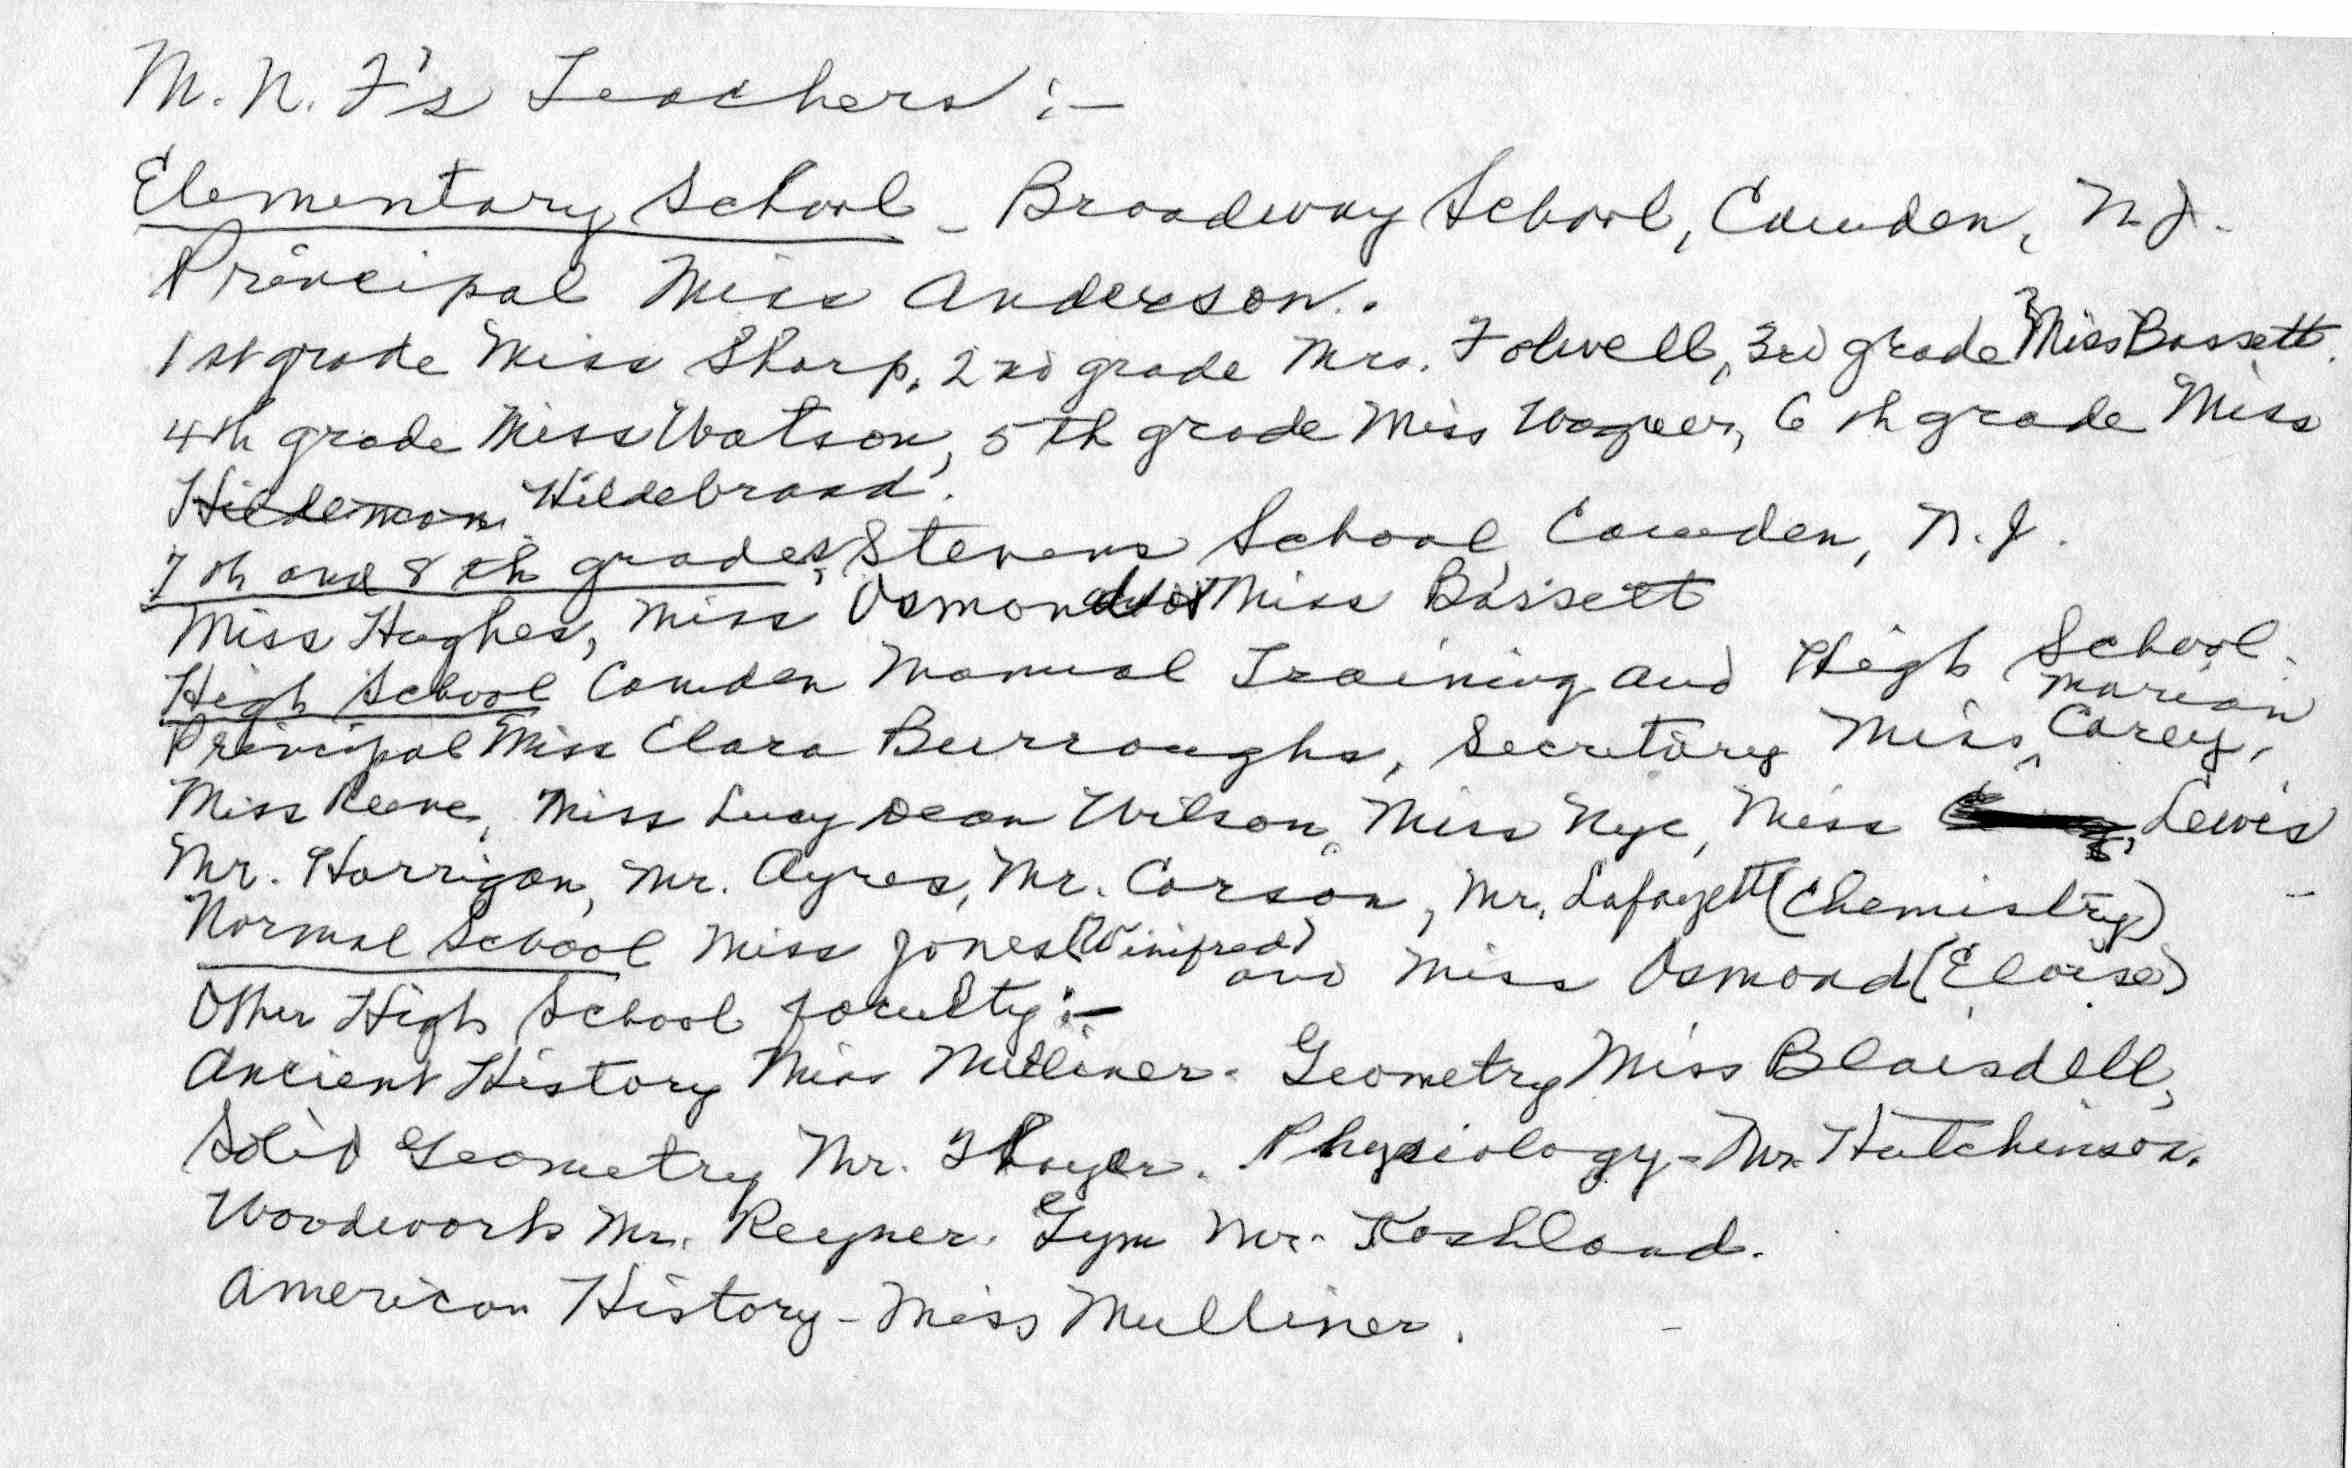 M. N. F's Teachers :-
Elementary School - Broadway School, Camden, N.J.
Principal Miss Anderson.
1st grade Miss Sharp, 2nd grade Mrs. Folwell, 3rd grade Miss Bassett.
4th grade Miss Watson, 5th grade Miss Wagner, 6th grade Miss
Hildeman Hildebrand.
7th and 8th grades, Stevens School Camden, N.J.
Miss Hughes, Miss Osmond Miss Bassett
High School Camden Manual Training and High School.
Principal Miss Clara Burroughs, Secretary Miss Marian Carey,
Miss Reeve, Miss Lucy Dean Wilson, Miss Nye, Miss Lewis
Mr. Harrigan, Mr. Ayres, Mr. Carson, Mr. Lafayett (Chemistry)
Normal School Miss Jones (Winifred) and Miss Osmond (Eloise)
Other High School faculty :-
Ancient History Miss Milliner. Geometry Miss Blaisdell,
Solid Geometry Mr. Thayer. Physiology - Mr. Hutchinson.
Woodwork Mr. Reyner. Gym Mr. Koshland.
American History - Miss Mulliner.